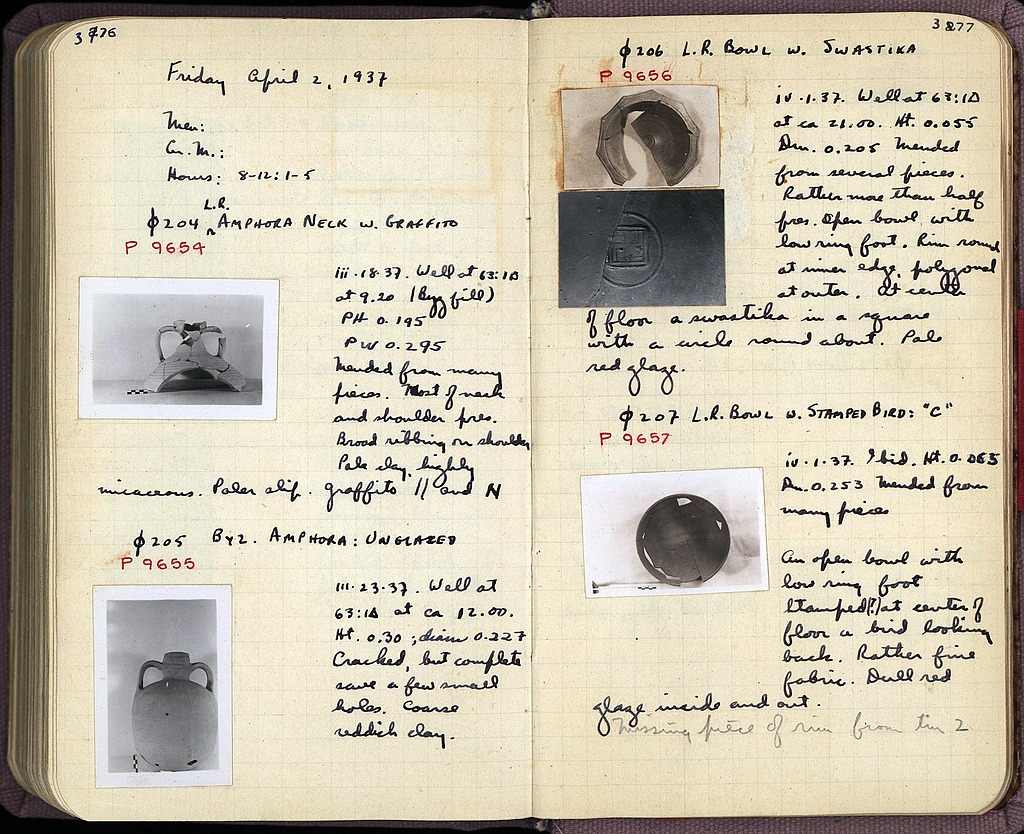 3876
Friday April 2, 1937
Men:
Gr. M.:
Hours: 8-12: 1-5
L.R.
Φ204 ^ AMPHORA NECK W. GRAFFITO
P 9654
iii-18-37. Well at 63:ΙΔ
at 9.20 (Byz fill)
PH 0.195
PW 0.295
Mended from many
pieces. Most of neck
and shoulder pres.
Broad ribbing on shoulder
Pale clay, highly
micaceous. Paler slip. graffito || and N
Φ205 BYZ. AMPHORA: UNGLAZED
P 9655
III-23-37. Well at
63:ΙΔ at ca 12.00.
Ht. 0.30; diam 0.227
Cracked, but complete
save a few small
holes. Coarse
reddish clay.
3877
Φ206 L.R. BOWL W. SWASTIKA
P 9656
iv-1-37. Well at 63:ΙΔ
at ca 21.00. Ht. 0.055
Dm. 0.205 Mended
from several pieces.
Rather more than half
pres. Open bowl with
low ring foot. Rim round
at inner edge, polygonal
at outer. At center
of floor a swastika in a square
with a circle round about. Pale
red glaze.
Φ207 L.R. BOWL W. STAMPED BIRD: "C"
P 9657
iv-1-37. Ibid. Ht. 0.
Dm. 0.253 Mended from
many pieces
An open bowl with
low ring foot
Stamped(?) at center of
floor a bird looking
back. Rather fine
fabric. Dull red
glaze inside and out.
Missing piece of rim from tin 2